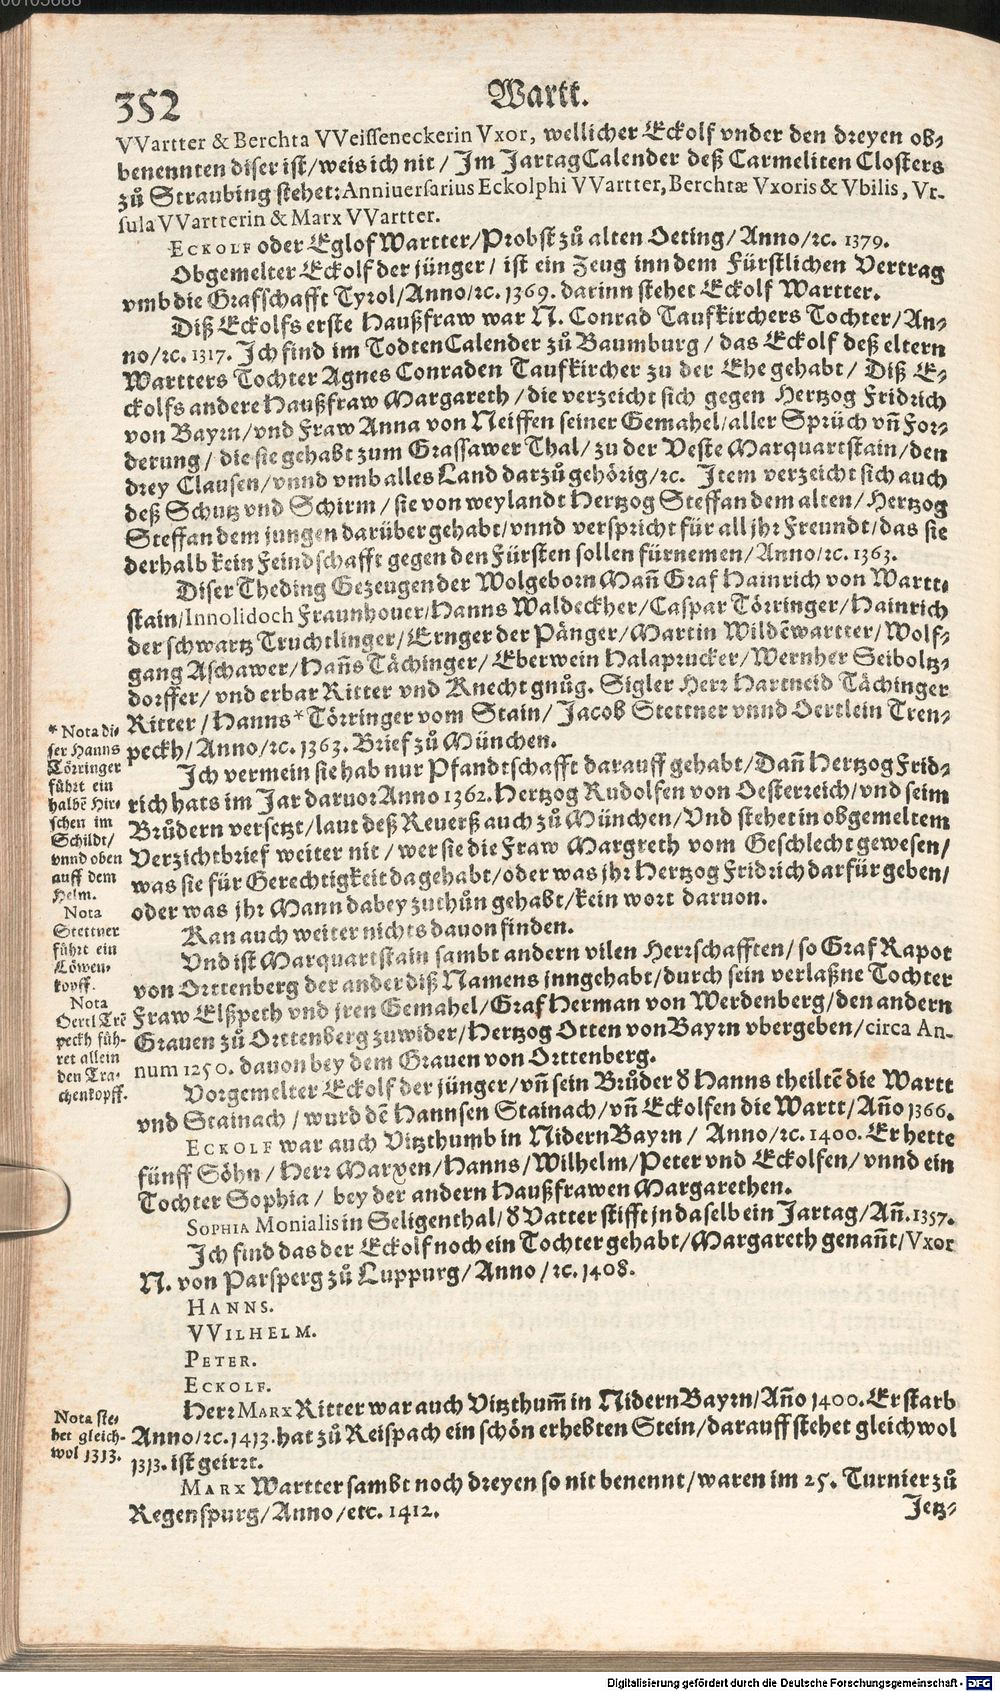 00103688
352
Wartt.
VVartter & Berchta VVeisseneckerin Vxor, wellicher Eckolf vnder den dreyen ob-
benennten diser ist/weis ich nit/ Im Jartag Calender deß Carmeliten Closters
zů Straubing stehet: Anniuersarius Eckolphi VVartter, Berchtæ Vxoris & Vbilis, Vr-
sula VVartterin & Marx VVartter.
ECKOLF oder Eglof Wartter/Probst zů alten Oeting/Anno/rc. 1379.
Obgemelter Eckolf der jünger/ ist ein Zeug inn dem Fürstlichen Vertrag
vmb die Grafschafft Tyrol/Anno/rc. 1369. darinn stehet Eckolf Wartter.
Diß Eckolfs erste Haußfraw war N. Conrad Taufkirchers Tochter/An-
no/rc. 1317. Ich find im Todten Calender zů Baumburg/ das Eckolf deß eltern
Wartters Tochter Agnes Conraden Taufkircher zu der Ehe gehabt/ Diß E-
ckolfs andere Haußfraw Margareth/die verzeicht sich gegen Hertzog Fridrich
von Bayrn/vnd Fraw Anna von Neiffen seiner Gemahel/aller Sprüch vñ For-
derung/die sie gehabt zum Grassawer Thal/zu der Veste Marquartstain/den
drey Clausen/vnnd vmb alles Land darzů gehörig/rc. Item verzeicht sich auch
deß Schutz vnd Schirm/sie von weylandt Hertzog Steffan dem alten/Hertzog
Steffan dem jungen darüber gehabt/vnnd verspricht für all jhr Freundt/das sie
derhalb kein Feindschafft gegen den Fürsten sollen fürnemen/Anno/rc. 1363.
Diser Theding Gezeugen der Wolgeborn Mañ Graf Hainrich von Wartt-
stain/Innolidoch Fraunhouer/Hanns Waldeckher/Caspar Törringer/Hainrich
der schwartz Truchtlinger/Ernger der Pänger/Martin Wildẽwartter/Wolf-
gang Aschawer/Hañs Tächinger/Eberwein Halaprucker/Wernher Seiboltz-
dorffer/vnd erbar Ritter vnd Knecht gnůg. Sigler Herr Hartneid Tächinger
Ritter/Hanns* Törringer vom Stain/Jacob Stettner vnnd Oertlein Tren-
peckh/Anno/rc. 1363. Brief zů München.
Ich vermein sie hab nur Pfandtschafft darauff gehabt/Dañ Hertzog Frid-
rich hats im Jar daruor Anno 1362. Hertzog Rudolfen von Oesterreich/vnd seim
Brůdern versetzt/laut deß Reuerß auch zů München/Vnd stehet in obgemeltem
Verzichtbrief weiter nit/wer sie die Fraw Margreth vom Geschlecht gewesen/
was sie für Gerechtigkeit da gehabt/oder was jhr Hertzog Fridrich darfür geben/
oder was jhr Mann dabey zuthůn gehabt/kein wort daruon.
Kan auch weiter nichts dauon finden.
Vnd ist Marquartstain sambt andern vilen Herrschafften/so Graf Rapot
von Orttenberg der ander diß Namens inngehabt/durch sein verlaßne Tochter
Fraw Elßpeth vnd jren Gemahel/Graf Herman von Werdenberg/den andern
Grauen zů Orttenberg zuwider/Hertzog Otten von Bayrn vbergeben/circa An-
num 1250. dauon bey dem Grauen von Orttenberg.
Vorgemelter Eckolf der jünger/vñ sein Brůder d Hanns theiltẽ die Wartt
vnd Stainach/wurd dẽ Hannsen Stainach/vñ Eckolfen die Wartt/Año 1366.
ECKOLF war auch Vitzthumb in Nidern Bayrn/ Anno/rc. 1400. Er hette
fünff Söhn/Herr Marxen/Hanns/Wilhelm/Peter vnd Eckolfen/vnnd ein
Tochter Sophia/ bey der andern Haußfrawen Margarethen.
SOPHIA Monialis in Seligenthal/d Vatter stifft jn daselb ein Jartag/Añ. 1357.
Ich find das der Eckolf noch ein Tochter gehabt/Margareth genañt/Vxor
N. von Parsperg zů Luppurg/Anno/rc. 1408.
HANNS.
VVILHELM.
PETER.
ECKOLF.
Herr MARX Ritter war auch Vitzthum̃ in Nidern Bayrn/Año 1400. Er starb
Anno/rc. 1413. hat zů Reispach ein schön erhebten Stein/darauff stehet gleichwol
1313. ist geirrt.
MARX Wartter sambt noch dreyen so nit benennt/waren im 25. Turnier zů
Regenspurg/Anno/etc. 1412.
Jetz-
* Nota di-
ser Hanns
Törringer
führt ein
halbẽ Hir-
schen im
Schildt/
vnnd oben
auff dem
Helm.
Nota
Stettner
führt ein
Löwen-
kopff.
Nota
Oertl Trẽ
peckh füh-
ret allein
den Tra-
chenkopff.
Nota ste-
het gleich-
wol 1313.
Digitalisierung gefördert durch die Deutsche Forschungsgemeinschaft - DFG